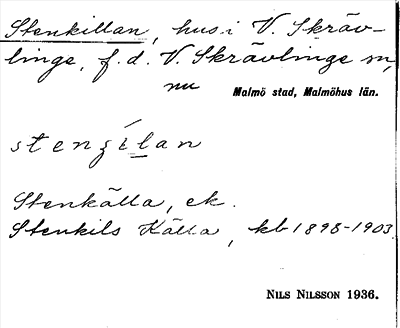 Stenkillan, hus i V. Skräv-
linge, f.d. V. Skrävlinge sn,
nu Malmö stad, Malmöhus län.
Stenkälla, ek.
Stenkils Källa, kb 1898-1903.
NILS NILSSON 1936.